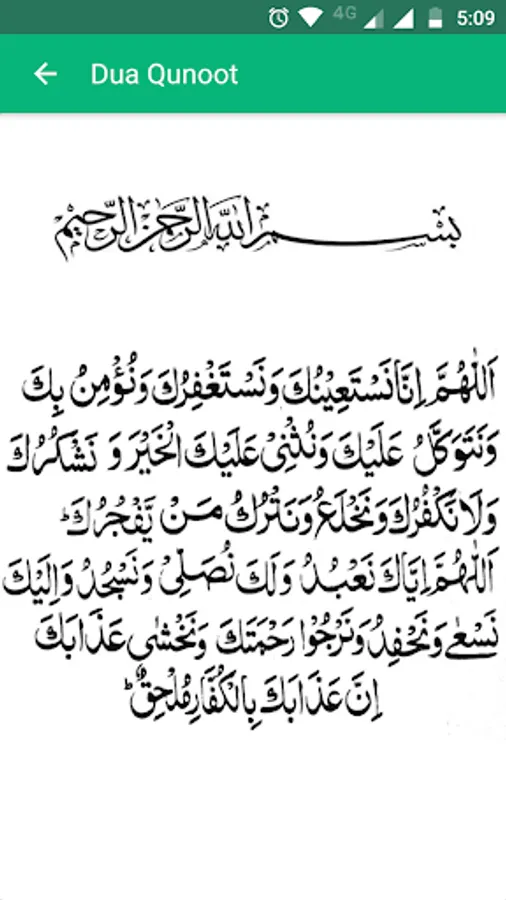 4G 5:09
Dua Qunoot
بسم الله الرحمن الرحيم
اَللّٰهُمَّ اِنَّا نَسْتَعِيْنُكَ وَنَسْتَغْفِرُكَ وَنُؤْمِنُ بِكَ
وَنَتَوَكَّلُ عَلَيْكَ وَنُثْنِيْ عَلَيْكَ الْخَيْرَ وَ نَشْكُرُكَ
وَلَا نَكْفُرُكَ وَنَخْلَعُ وَنَتْرُكُ مَنْ يَّفْجُرُكَ ؕ
اَللّٰهُمَّ اِيَّاكَ نَعْبُدُ وَلَكَ نُصَلِّيْ وَنَسْجُدُ وَاِلَيْكَ
نَسْعٰى وَنَحْفِدُ وَنَرْجُوْا رَحْمَتَكَ وَنَخْشٰى عَذَابَكَ
اِنَّ عَذَابَكَ بِالْكُفَّارِ مُلْحِقٌ ؕ